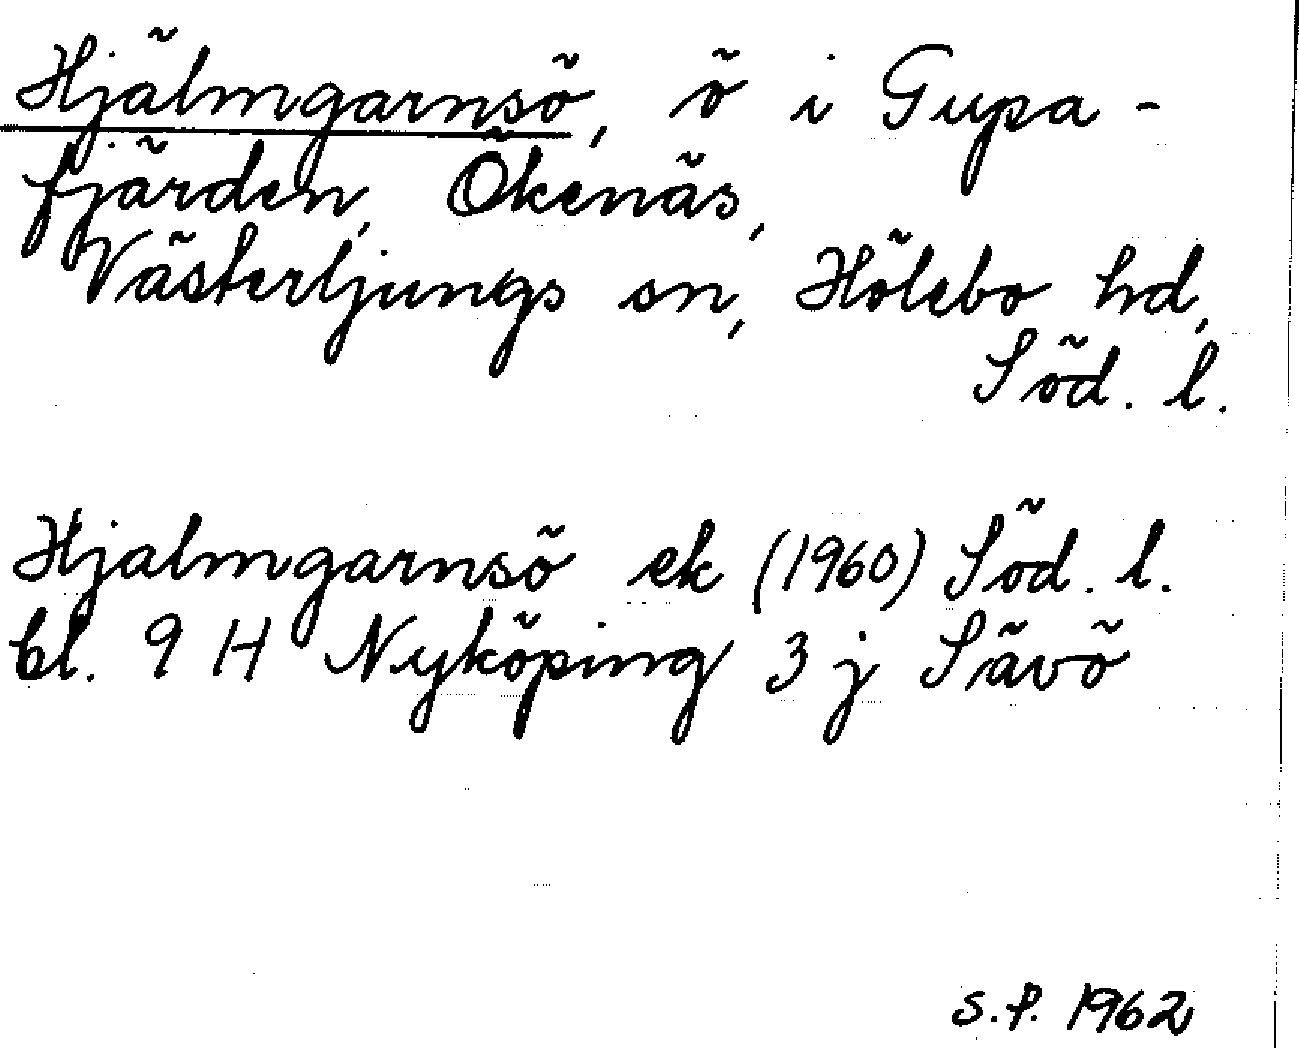 Hjälmgarnsö, ö i Gupa-
fjärden, Ökenäs,
Västerljungs sn, Hölebo hd,
Söd. l.
Hjalmgarnsö ek (1960) Söd. l.
bl. 9 H Nyköping 3 j Sävö
S.P. 1962